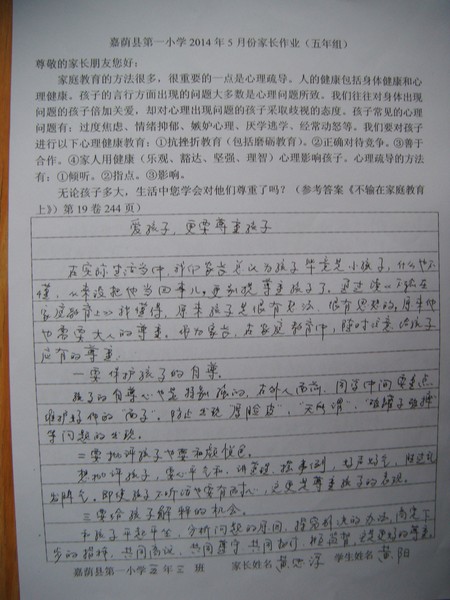 嘉荫县第一小学2014年5月份家长作业（五年组）
尊敬的家长朋友您好：
家庭教育的方法很多，很重要的一点是心理疏导。人的健康包括身体健康和心
理健康。孩子的言行方面出现的问题大多数是心理问题所致。我们往往对身体出现
问题的孩子倍加关爱，却对心理出现问题的孩子采取歧视的态度。孩子常见的心理
问题有：过度焦虑、情绪抑郁、嫉妒心理、厌学逃学、经常动怒等。我们要对孩子
进行以下心理健康教育：①抗挫折教育（包括磨砺教育）。②正确对待竞争。③善于
合作。④家人用健康（乐观、豁达、坚强、理智）心理影响孩子。心理疏导的方法
有：①倾听。②指点。③影响。
无论孩子多大，生活中您学会对他们尊重了吗？（参考答案《不输在家庭教育
上》）第19卷244页）
爱孩子，更要尊重孩子
在实际生活当中，我们家长总认为孩子毕竟是小孩子，什么也不
懂，从来没把他当回事儿，更别提尊重孩子了。
家庭教育上》才懂得，原来孩子是很有思想的，
也需要大人的尊重。作为家长，在家庭教育中，随时注意给孩子
应有的尊重
一要保护孩子的自尊。
孩子的自尊心也是特别强的，在外人面前，同学中间要重点
维护好他的"面子"。防止出现"厚脸皮"，"无所谓"，"破罐子破摔"
等问题的出现。
二要批评孩子也要和颜悦色。
想批评孩子，要心平气和，讲道理，
发脾气。即使孩子不听话也要有耐心，这更是尊重孩子的表现。
三要给孩子解释的机会。
和孩子平起平坐，分析问题的原因，探究解决的办法，
步的措施，共同商议，共同遵守，共同
嘉荫县第一小学五年三班 家长姓名 黄 学生姓名 黄阳